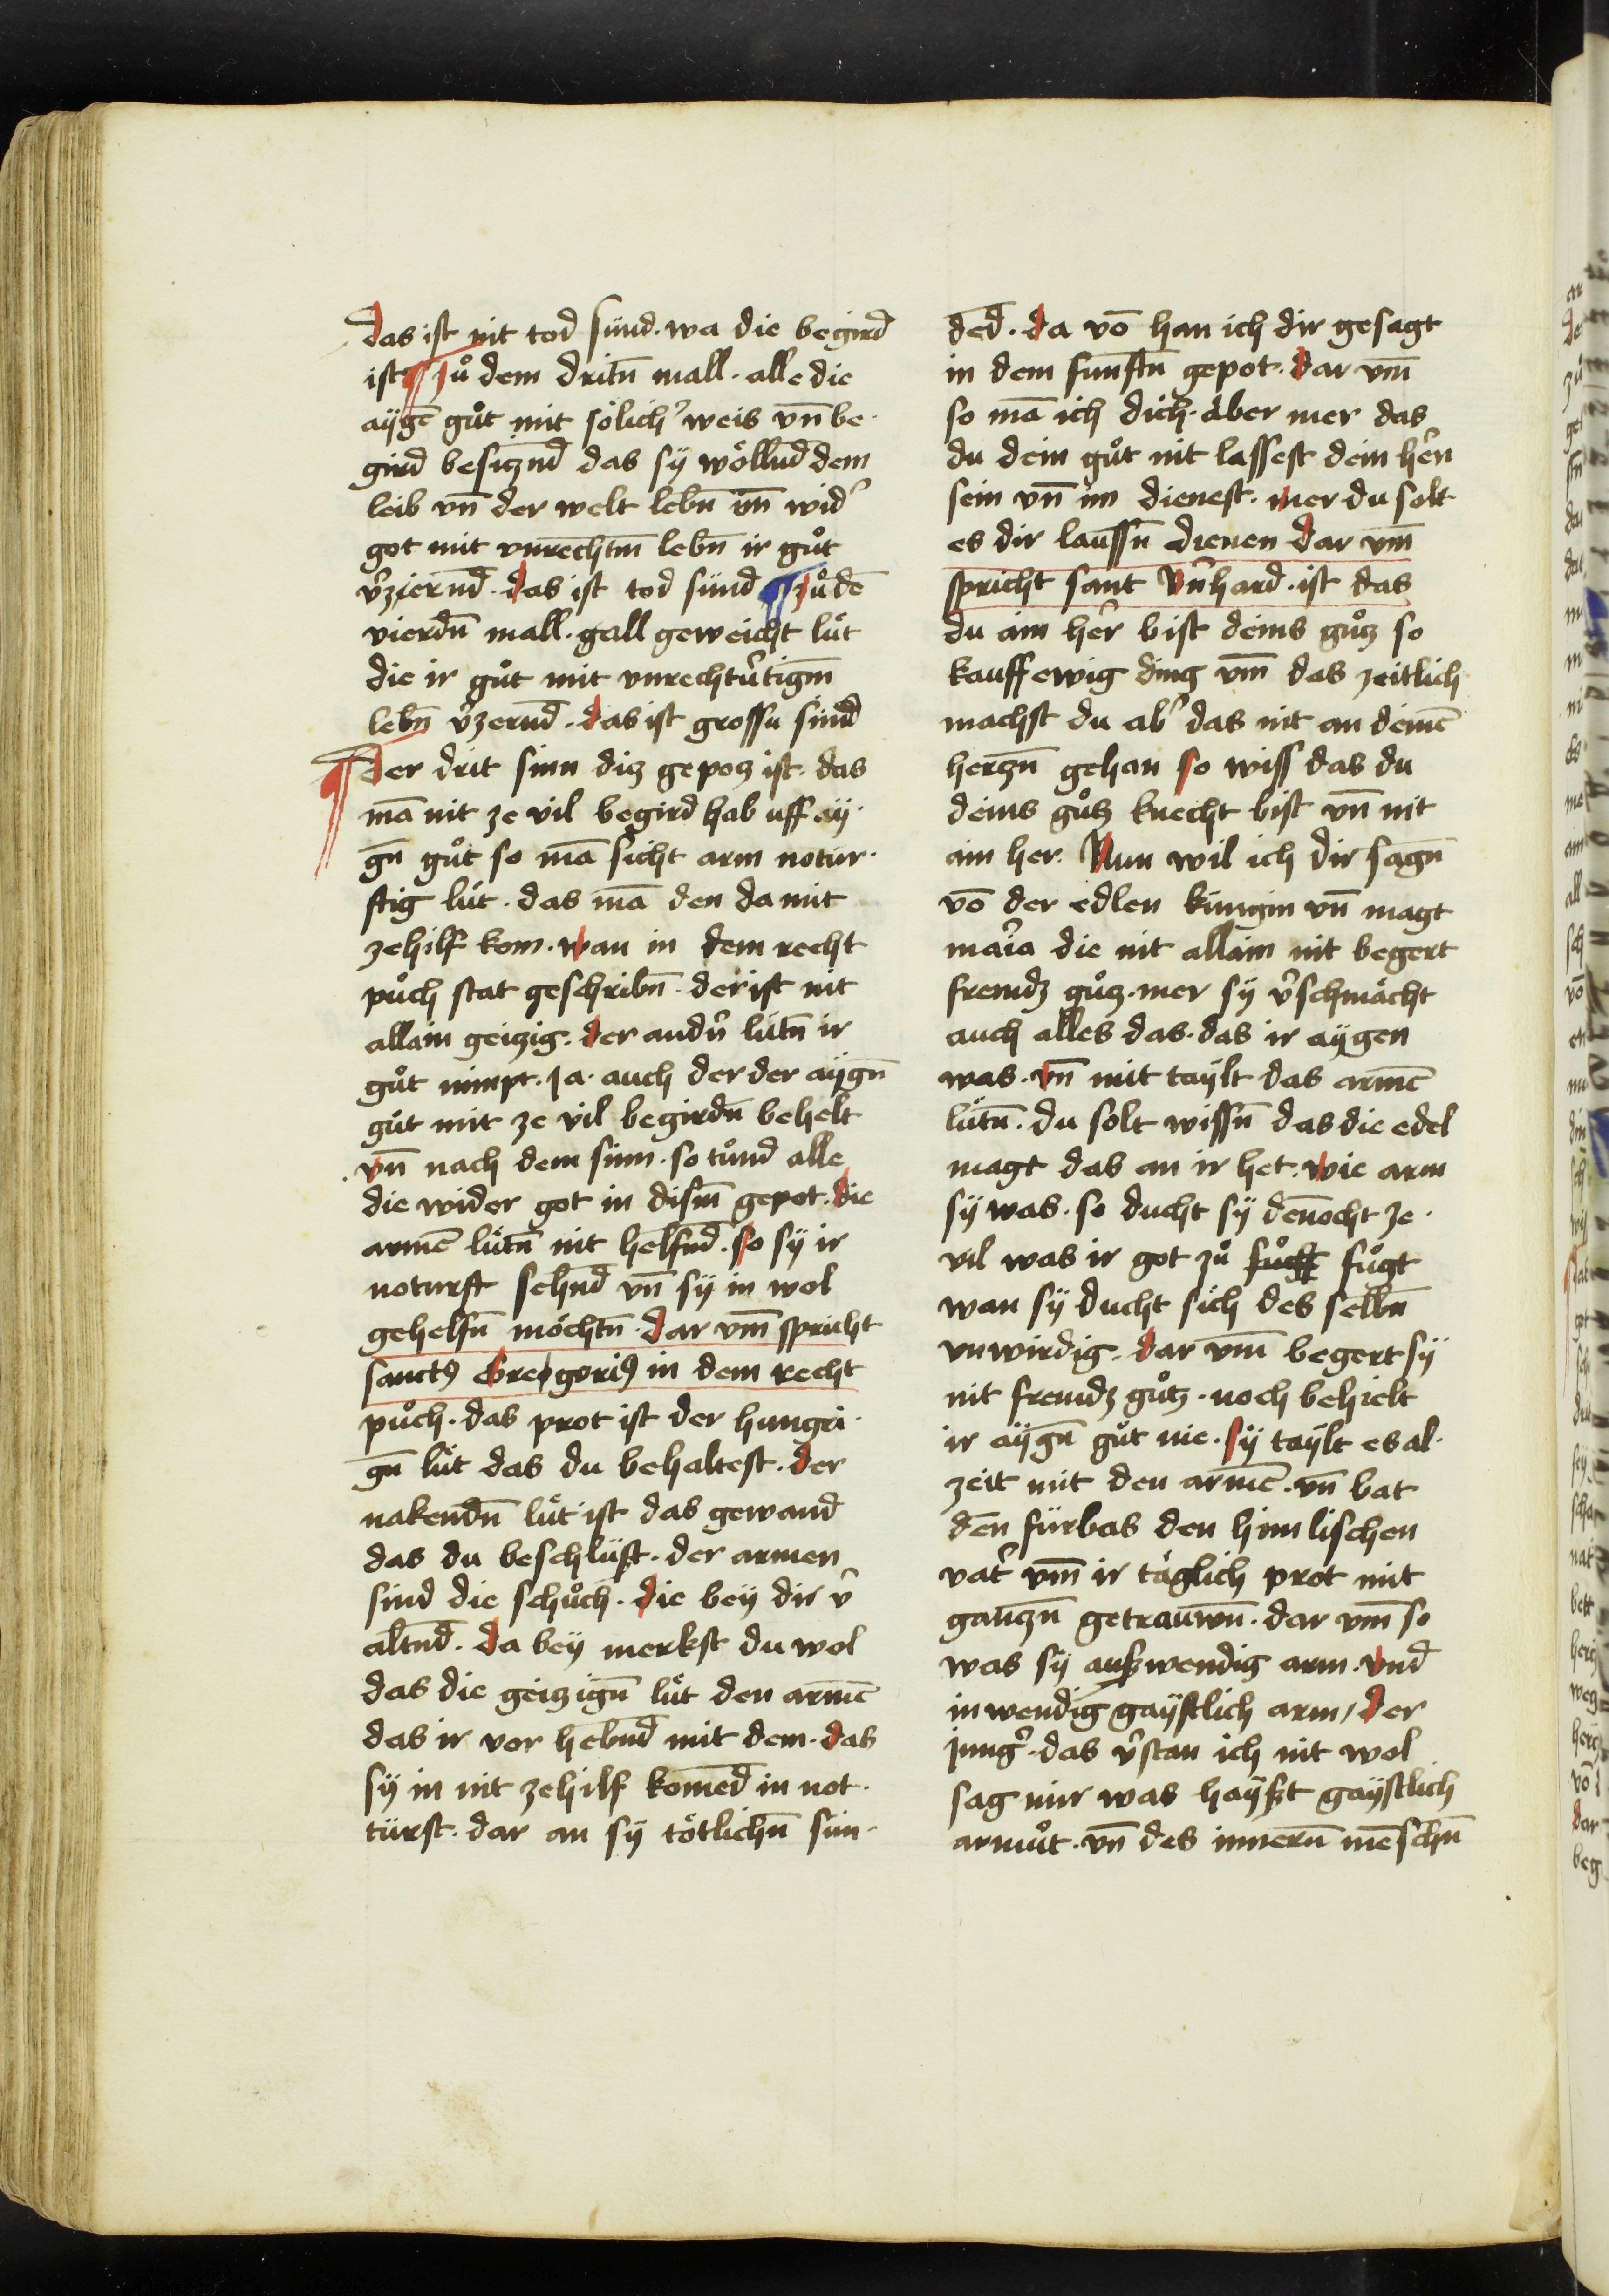 das ist nit tod sünd. wa die begird
ist ¶ zů dem dritn̄ mall. alle die
aygē gůt mit sölich' weis vn̄ be-
gird besiczn̄d das sÿ wöllnd dem
leib vn̄ der welt lebn̄ vn̄ wid'
got mit vnrechtm̄ lebn̄ ir gůt
v'ziern̄d. das ist tod sünd ¶ zů dē
vierdn̄ mall. gall geweicht lüt
die ir gůt mit vnrechtu'tigm̄
lebn̄ v'zern̄d. das ist grossu sünd
¶ Der drit sinn diz gepoz ist. das
mā nit ze vil begird hab uff aÿ-
gn̄ gůt so mā sicht arm notur-
ftig lüt. das mā den da mit
zehilf kom. wan in dem recht
půch stat geschribn̄. der ist nit
allain geizig. der andn' lütn̄ ir
gůt nimpt. Ja. auch der der aÿgn̄
gůt mit ze vil begirdn̄ behelt
vn̄ nach dem sinn. so tůnd alle
die wider got in dism̄ gepot. die
armē lütn̄ nit helfn̄d. so sÿ ir
noturft sehn̄d vn̄ sÿ in wol
gehelfn̄ möchtn̄. dar vm̄ spricht
sanctꝰ Gregoriꝰ in dem recht
půch. das prot ist der hungri-
gn̄ lüt das du behaltest. der
nakendn̄ lüt ist das gewand
das du beschlüst. der armen
sind die schůch. die beÿ dir v'
altn̄d. da beÿ merkst du wol
das die geizign̄ lüt den armē
das ir vor hebn̄d mit dem. das
sÿ in nit zehilf komēd in not-
türft. dar an sÿ tötlichn̄ sün-
dēd. da vō han ich dir gesagt
in dem funftn̄ gepot. dar vm̄
so mā ich dich. aber mer das
du dein gůt nit lassest dein hēn
sein vn̄ im dienest. mer du solt
es dir laussn̄ dienen dar vm̄
spricht sant v'nhard. ist das
du ain hēr bist deins gůtz so
kauff ewig ding vm̄ das zeitlich
machst du ab' das nit an deinē
herczn̄ gehan so wiss das du
deins gůtz knecht bist vn̄ nit
ain her. Nun wil ich dir sagn̄
vō der edlen küngin vn̄ magt
maria die nit allain nit begert
fremdz gůtz. mer sÿ v'schmächt
auch alles das. das ir aÿgen
was. vn̄ mit taÿlt das armē
lütn̄. du solt wissn̄ das die edel
magt das an ir het. wie arm
sÿ was. so ducht sÿ den̄ocht ze-
vil was ir got zů fůgt
wan sÿ ducht sich des selbn̄
vnwirdig. dar vm̄ begert sÿ
nit fremdz gůtz. noch behielt
ir aÿgn̄ gůt nie. sÿ taÿlt es al-
zeit mit den armē. vn̄ bat
den̄ fürbas den himlischen
vat' vm̄ ir täglich prot mit
ganczn̄ getrauwn̄. dar vm̄ so
was sÿ außwendig arm. vnd
inwendig gaÿstlich arm / der
jung'. das v'stan ich nit wol
sag mir was haÿst gaÿstlich
armůt. vn̄ des innern̄ mēschn̄